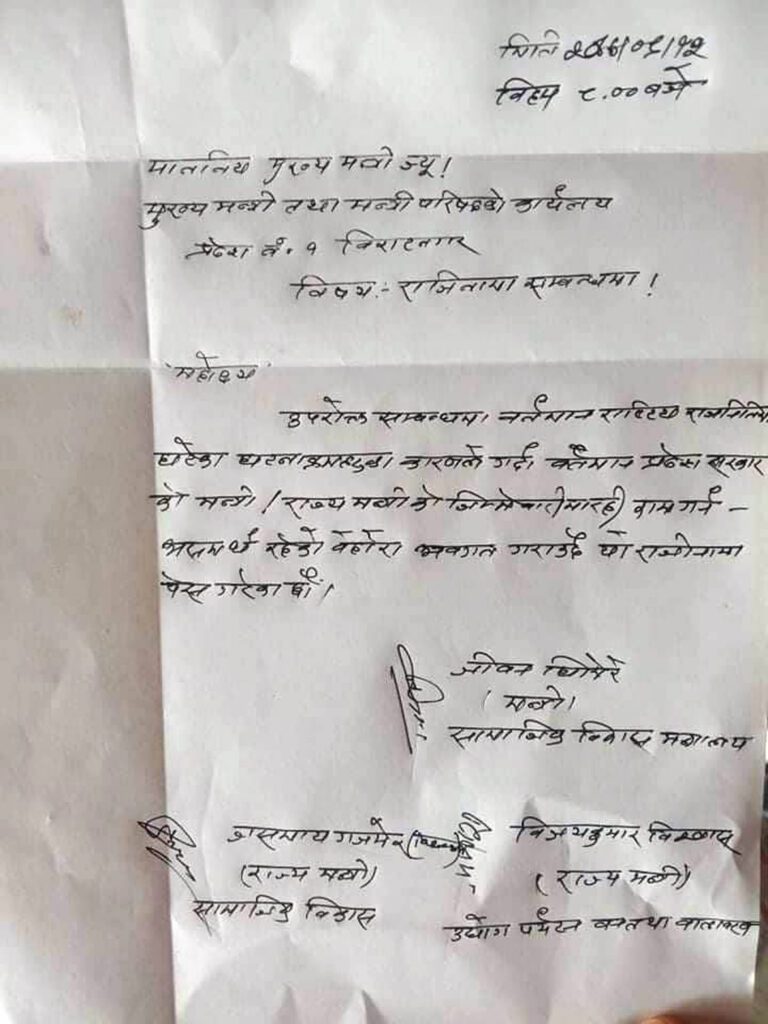 मिति
विहान ८.०० बजे
माननिय मुख्य मन्त्री ज्यू!
मुख्य मन्त्री तथा मन्त्री परिषदको कार्यलय
प्रदेश नं. १ विराटनगर
विषय:- राजिनामा सम्बन्धमा!
महोदय
उपरोक्त सम्बन्धमा वर्तमान राष्ट्रिय राजनितिमा
घटेका घटनाक्रमहरुका कारणले गर्दा वर्तमान प्रदेश सरकार
को मन्त्री / राज्य मन्त्री को जिम्मेवारीमा रही काम गर्न -
असमर्थ रहेको वेहोरा अवगत गराउँदै यो राजीनामा
पेस गरेका छौं।
जीवन घिमिरे
(मन्त्री)
सामाजिक विकास मन्त्रालय
जसमाया गजमेर
(राज्य मन्त्री)
सामाजिक विकास
विजयकुमार विश्वास
(राज्य मन्त्री)
उद्योग पर्यटन वन तथा वातावरण